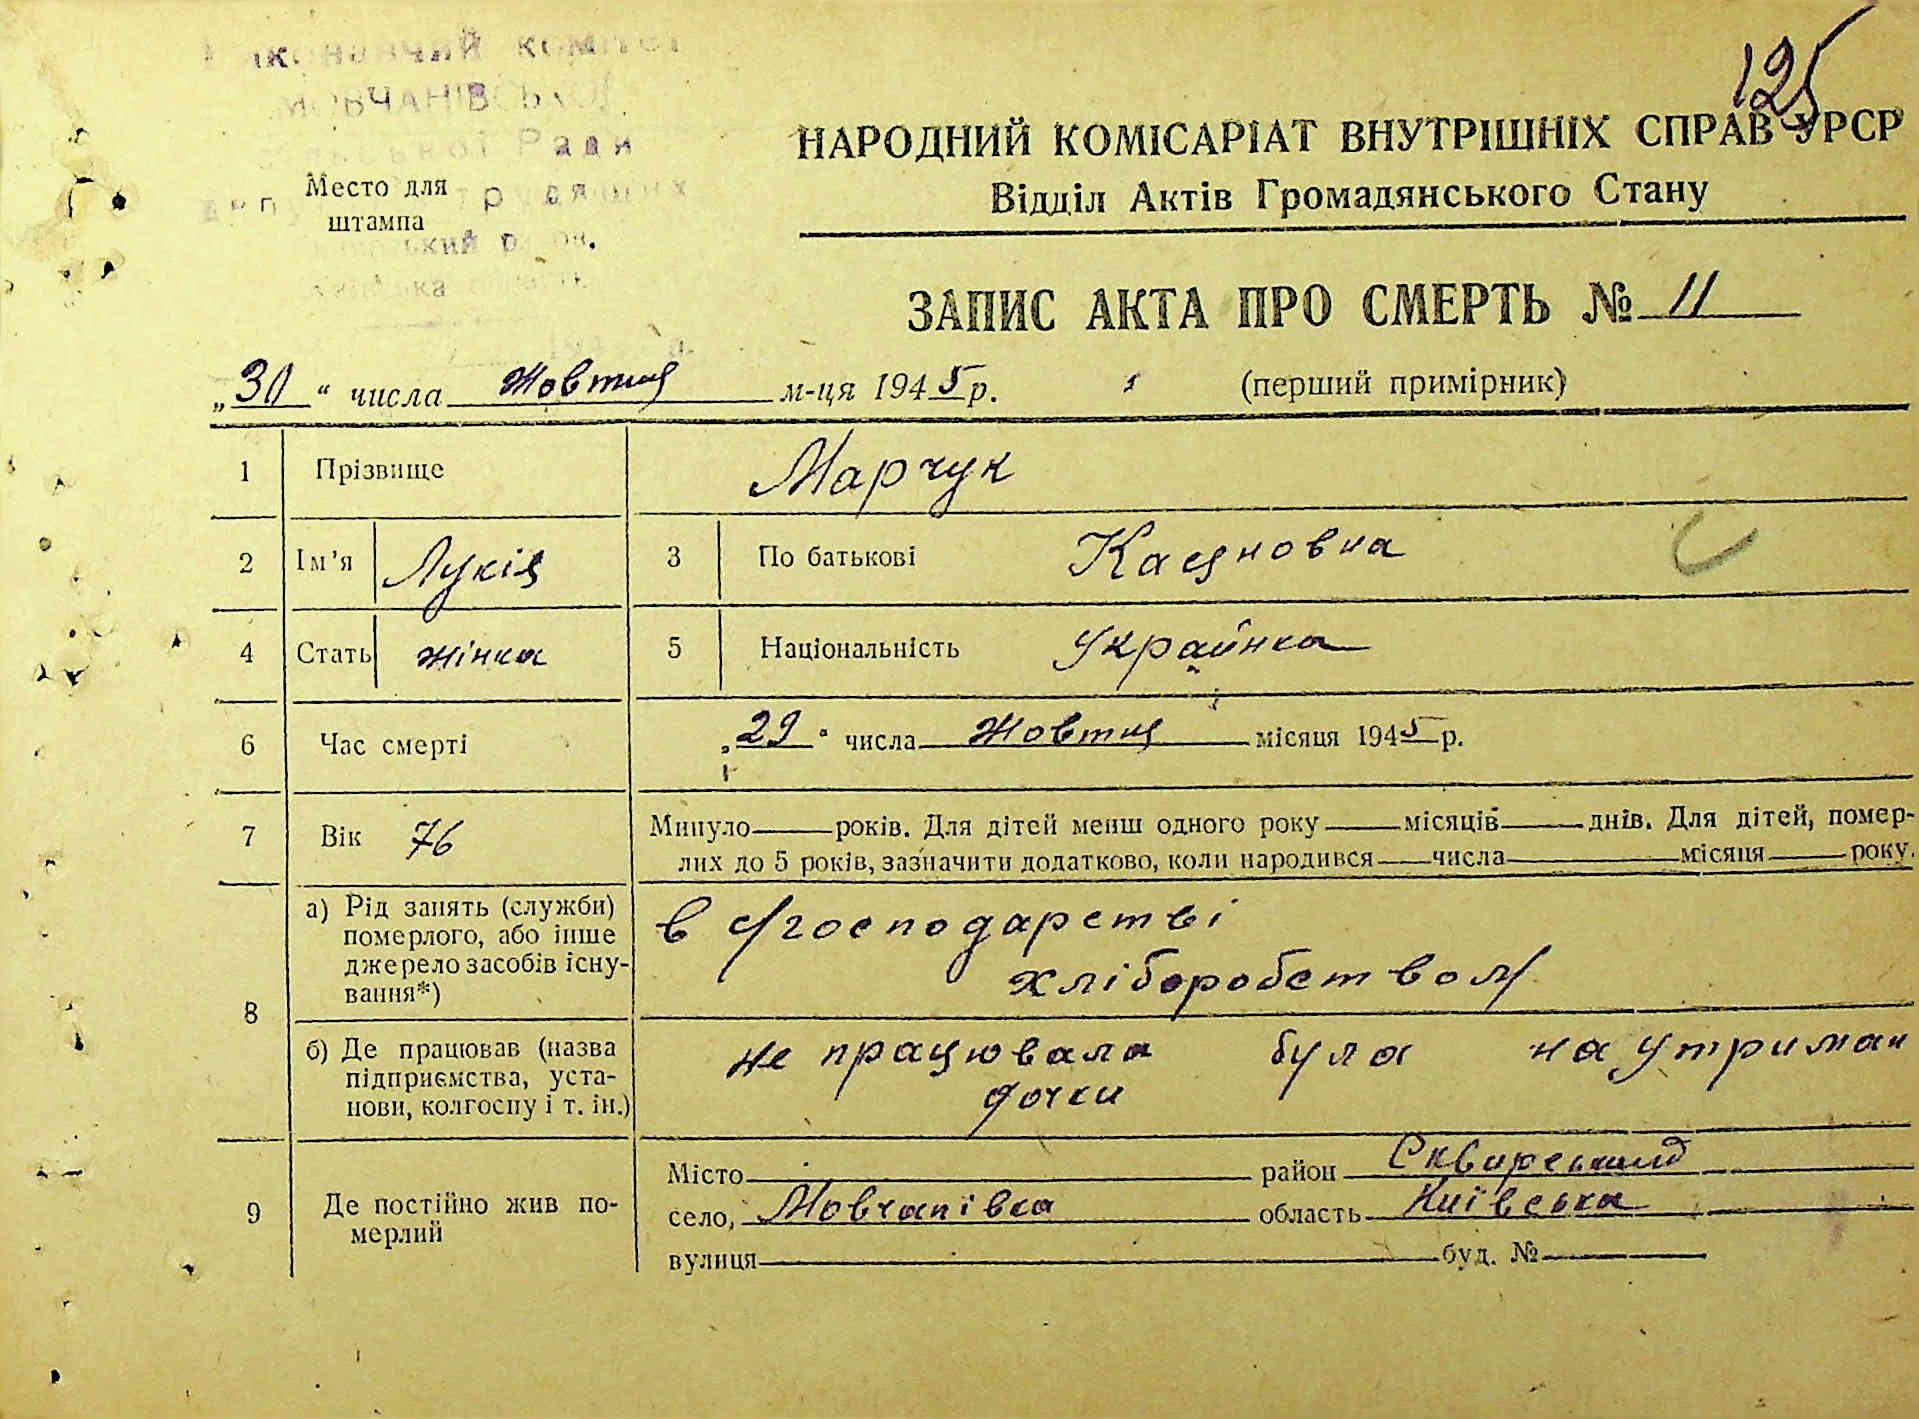 125
Виконавчий комітет
МОВЧАНІВСЬКОЇ
Ради
трудящих
Место для
штампа
НАРОДНИЙ КОМІСАРІАТ ВНУТРІШНІХ СПРАВ УРСР
Відділ Актів Громадянського Стану
ЗАПИС АКТА ПРО СМЕРТЬ № 11
„30“ числа Жовтня м-ця 1945 р. (перший примірник)
1 Прізвище Марчук
2 Ім'я Лукія 3 По батькові Касяновна
4 Стать жінка 5 Національність Українка
6 Час смерті „29“ числа Жовтня місяця 1945 р.
7 Вік 76 Минуло років. Для дітей менш одного року місяців днів. Для дітей, помер-
лих до 5 років, зазначити додатково, коли народився числа місяця року.
8 а) Рід занять (служби)
померлого, або інше
джерело засобів існу-
вання*)
в с/господарстві
хліборобством
б) Де працював (назва
підприємства, уста-
нови, колгоспу і т. ін.)
не працювала була на утриман
дочки
9 Де постійно жив по-
мерлий
Місто район Сквирський
село, Мовчанівка область Київська
вулиця буд. №